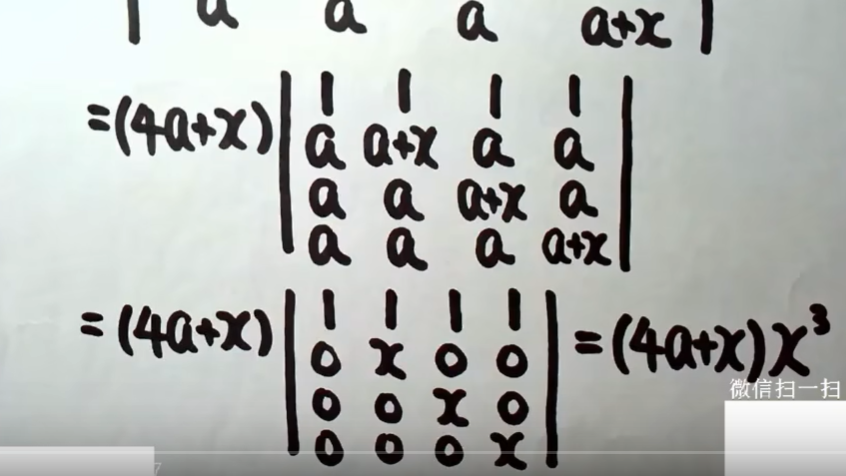 | a a a a+x |
=(4a+x) | 1 1 1 1 |
| a a+x a a |
| a a a+x a |
| a a a a+x |
=(4a+x) | 1 1 1 1 | =(4a+x)x³
| 0 x 0 0 |
| 0 0 x 0 |
| 0 0 0 x |
微信扫一扫